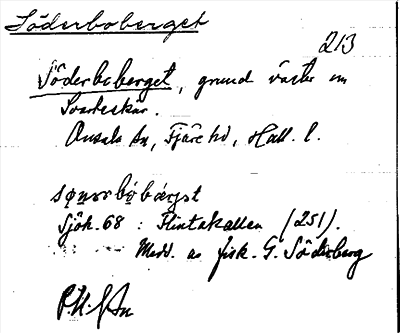 Söderboberget
213
Söderboberget, grund väster om
Svarteskär.
Onsala sn, Fjäre hd, Hall. l.
Sjök. 68 : Flintakallen (251).
Medd. av fisk. G. Söderberg